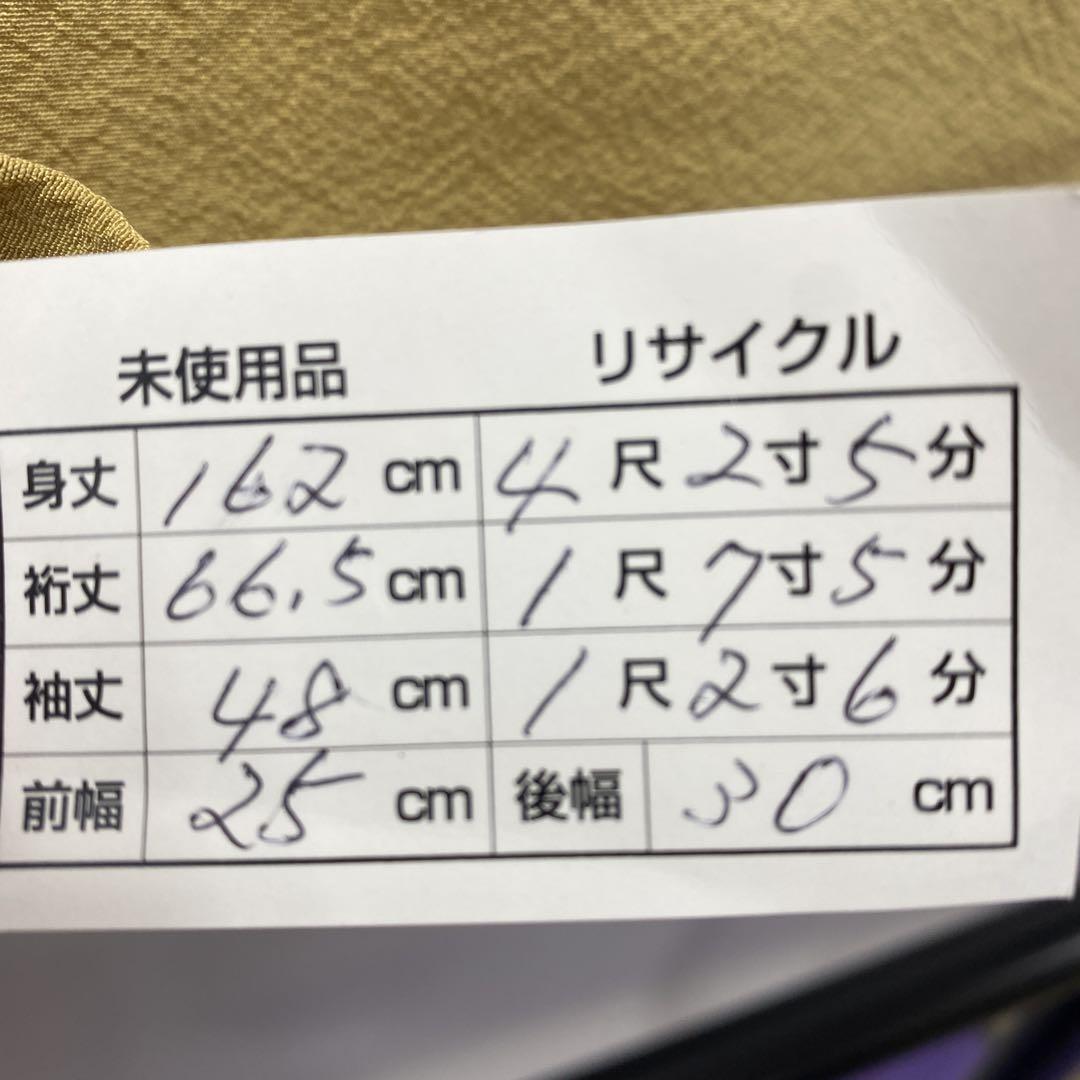 未使用品 リサイクル
身丈 162 cm 4 尺 2 寸 5 分
裄丈 66.5 cm 1 尺 7 寸 5 分
袖丈 48 cm 1 尺 2 寸 6 分
前幅 25 cm 後幅 30 cm